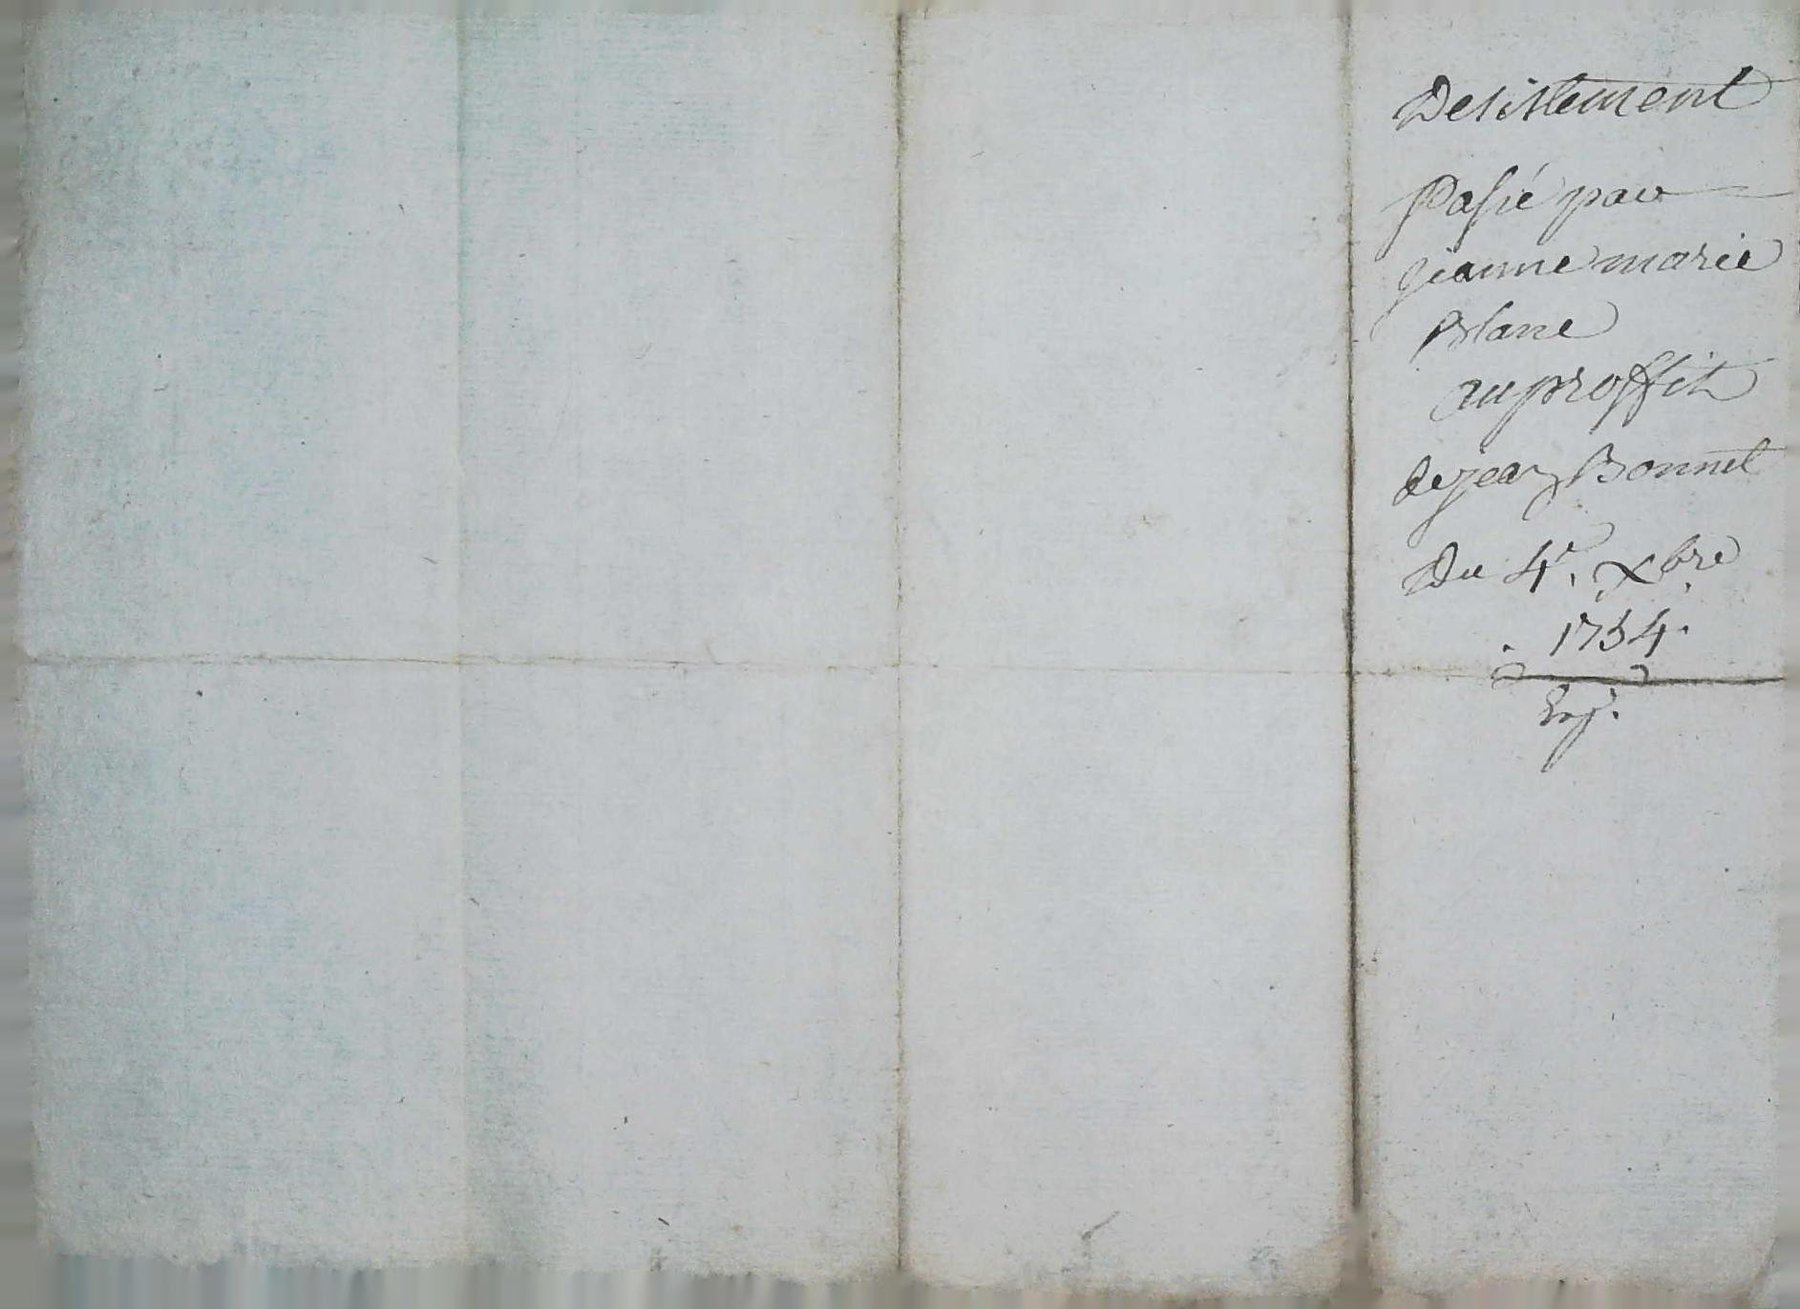 Desistement
Passé par
jeanne marie
Blanc
au proffit
de jean Bonnet
Du 4e. Xbre
1754.
Exp.